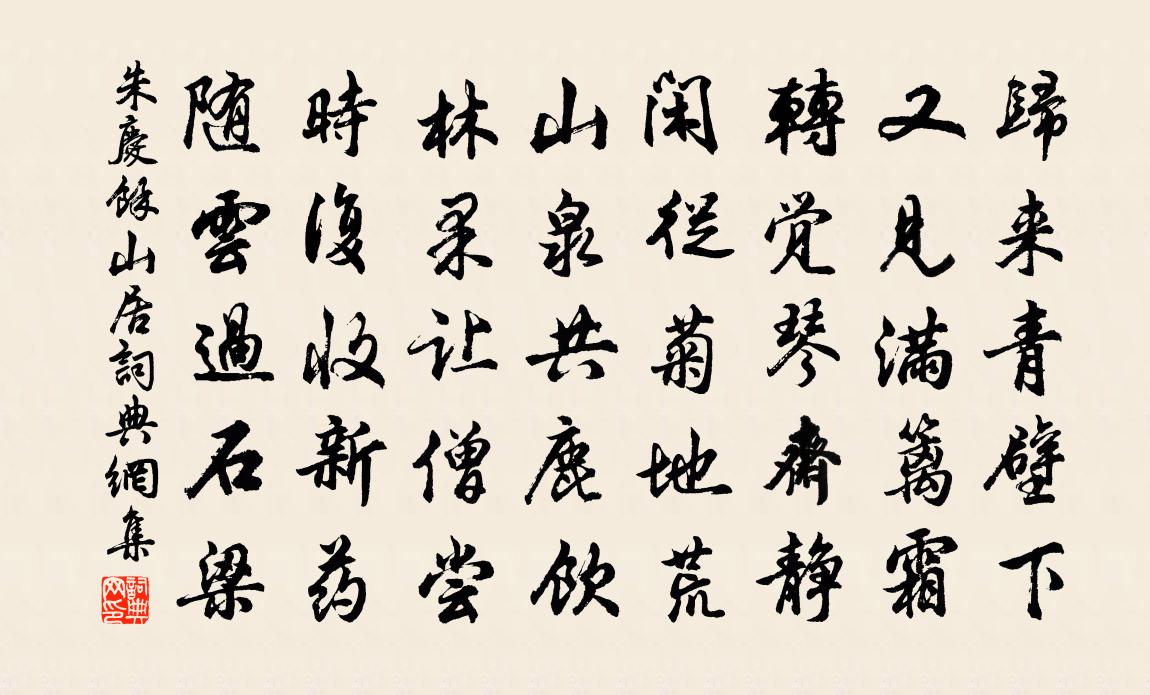 歸来青壁下
又見滿籬霜
轉觉琴齋靜
閑從菊地荒
山泉共鹿飲
林果让僧尝
時復收新药
随雲過石梁
朱慶餘山居詞典網集
詞典网印